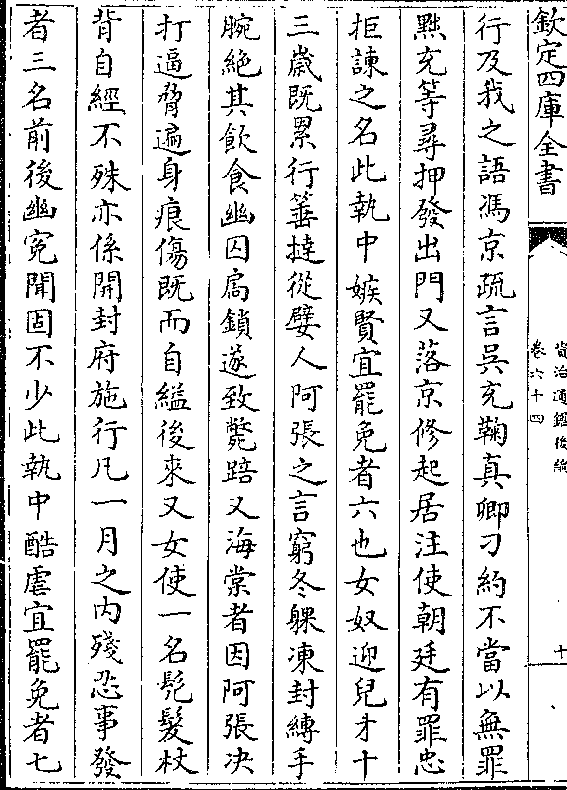 欽定四庫全書
資治通鑑後編
卷六十四
十
行及我之語馮京疏言吳充鞠真卿刁約不當以無罪
黜充等尋押發出門又落京修起居注使朝廷有罪忠
拒諫之名此執中嫉賢宜罷免者六也女奴迎兒才十
三歲既累行箠撻從嬖人阿張之言窮冬躶凍封縛手
腕絶其飲食幽囚扃鎖遂致斃踣又海棠者因阿張决
打逼脅遍身痕傷既而自縊後來又女使一名髠髮杖
背自經不殊亦係開封府施行凡一月之内殘忍事發
者三名前後幽寃聞固不少此執中酷虐宜罷免者七